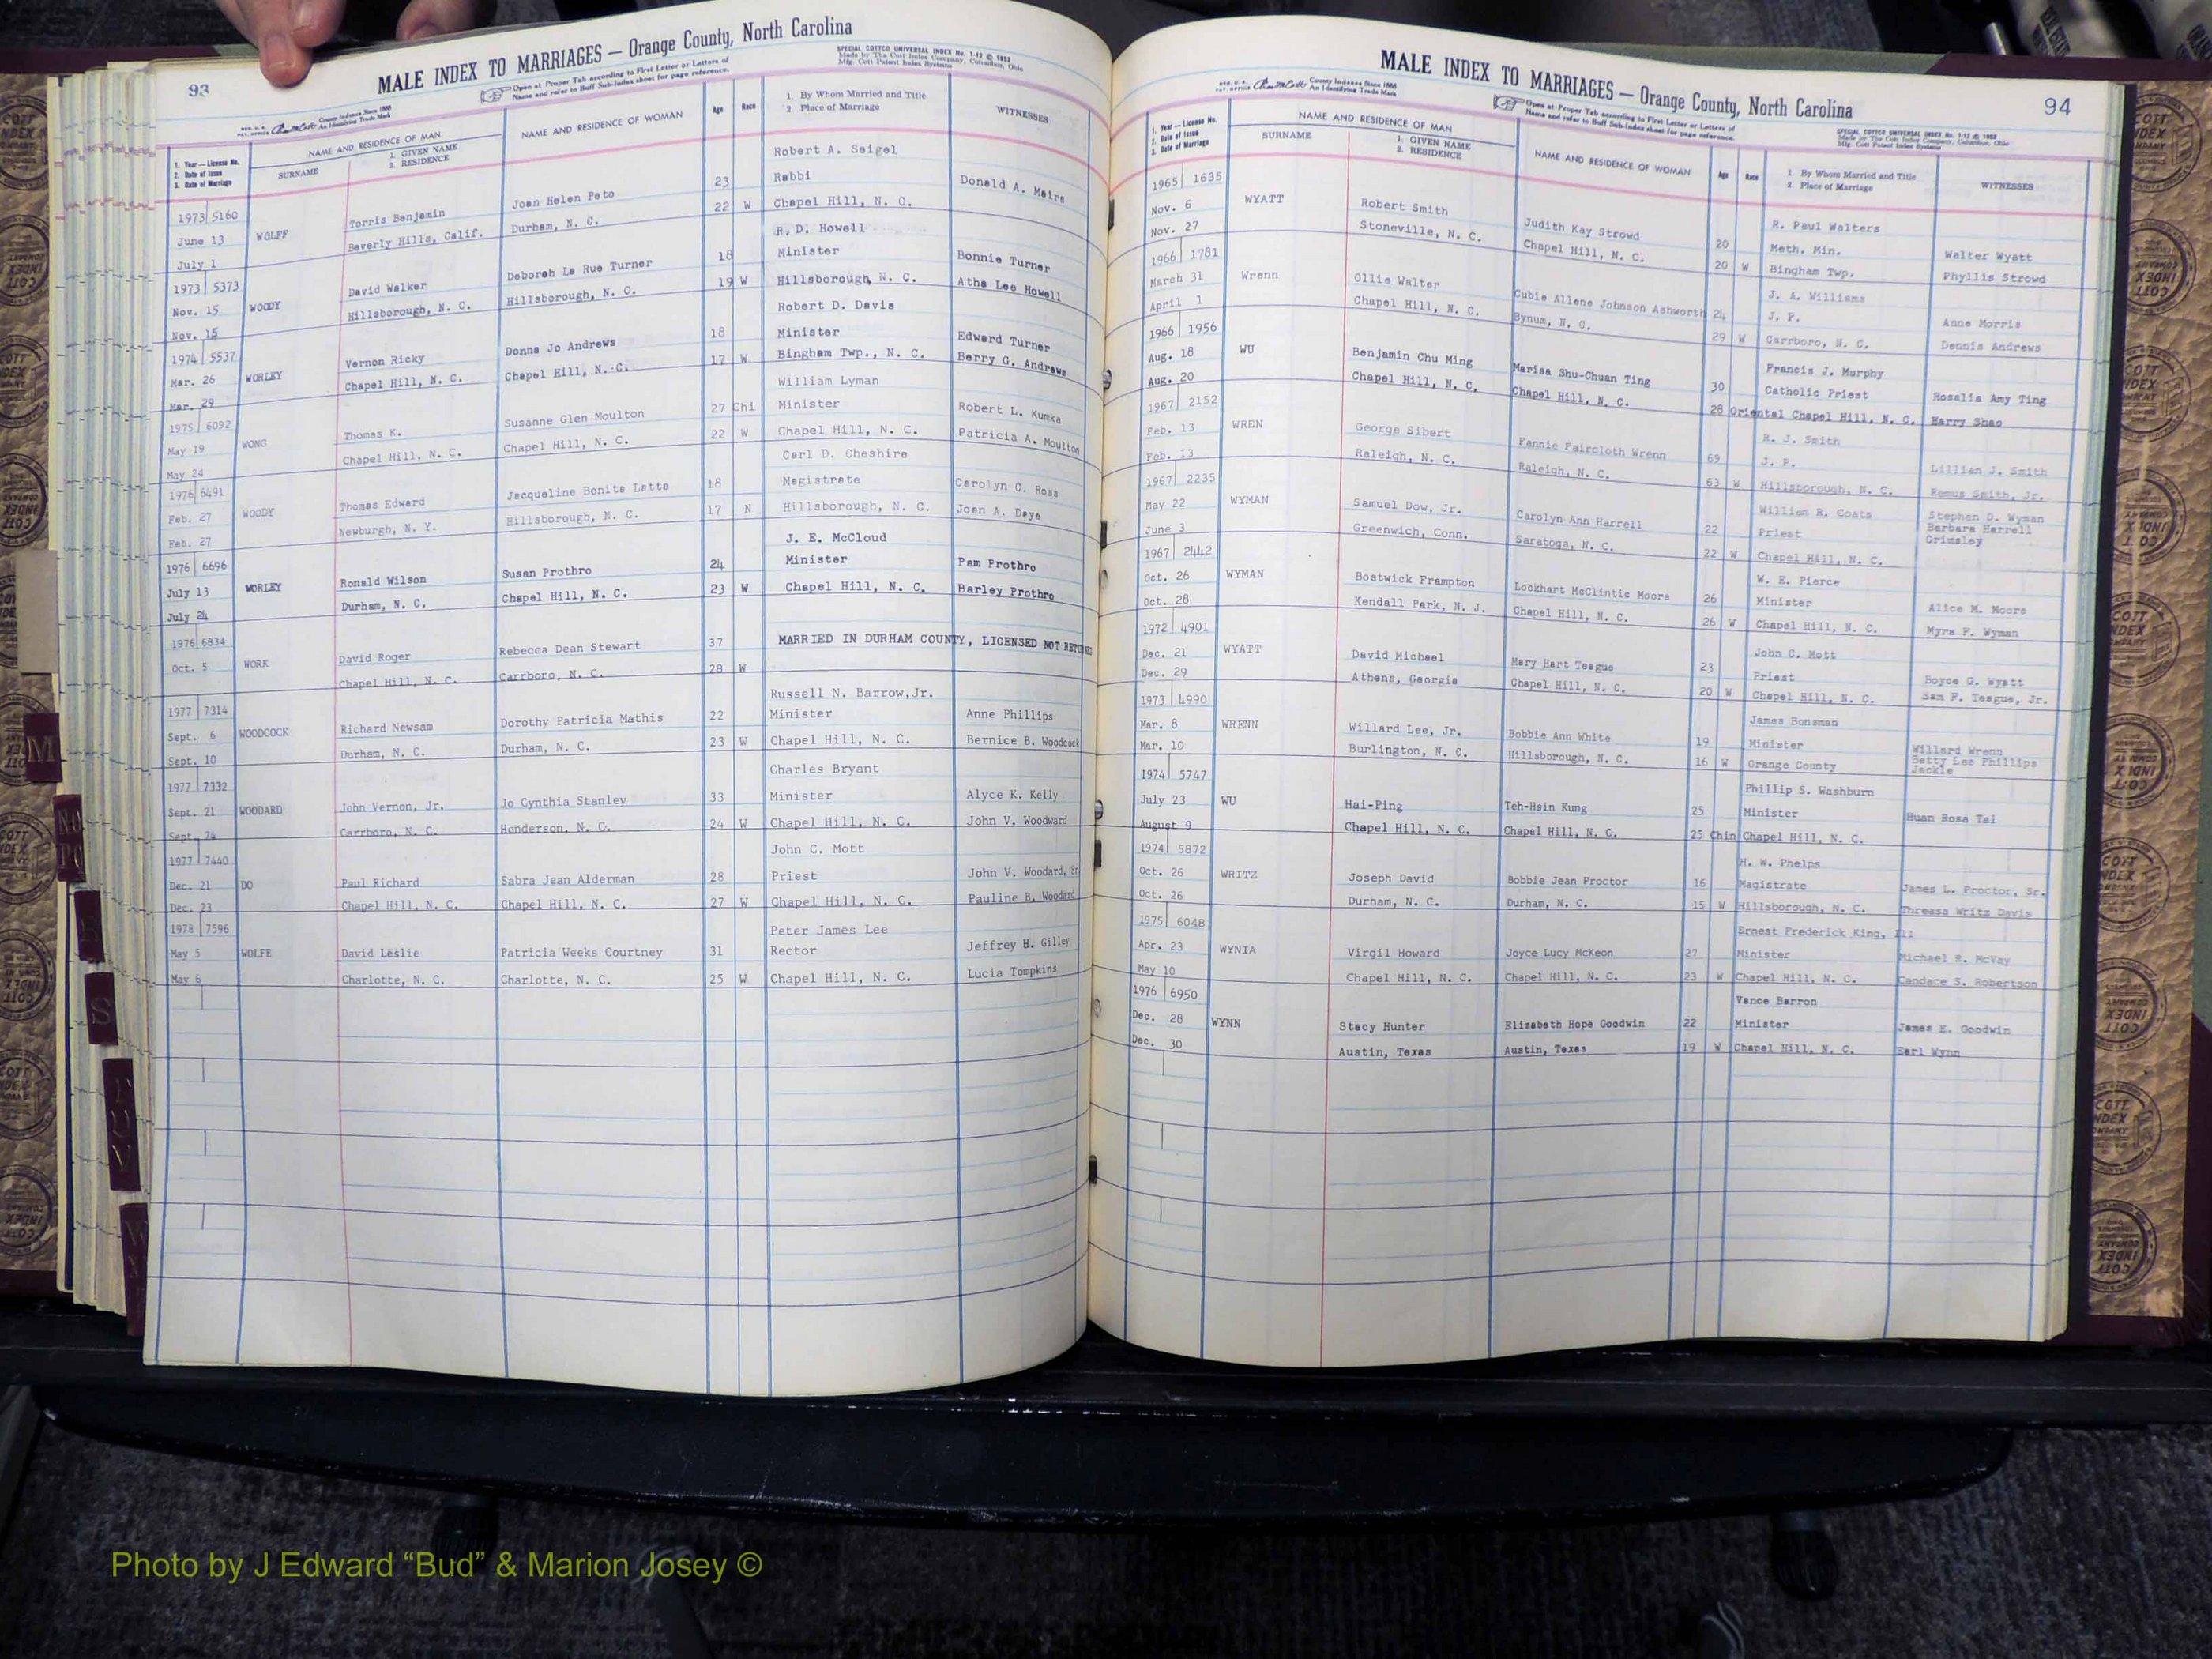 93
MALE INDEX TO MARRIAGES — Orange County, North Carolina
Open at Proper Tab according to First Letter or Letters of
Name and refer to Buff Sub-Index sheet for page reference.
SPECIAL COTTCO UNIVERSAL INDEX No. 1-12 © 1952
Made by The Cott Index Company, Columbus, Ohio
Mfg. Cott Patent Index Systems
County Indexes Since 1888
An Identifying Trade Mark
1. Year — License No.
2. Date of Issue
3. Date of Marriage
NAME AND RESIDENCE OF MAN
SURNAME
1. GIVEN NAME
2. RESIDENCE
NAME AND RESIDENCE OF WOMAN
Age
Race
1. By Whom Married and Title
2. Place of Marriage
WITNESSES
Robert A. Seigel
1973 5160 Torris Benjamin Joan Helen Peto 23 Rabbi Donald A. Meirs
June 13 WOLFF Beverly Hills, Calif. Durham, N. C. 22 W Chapel Hill, N. C.
July 1 R. D. Howell
1973 5373 David Walker Deborah La Rue Turner 18 Minister Bonnie Turner
Nov. 15 WOODY Hillsborough, N. C. Hillsborough, N. C. 19 W Hillsborough, N. C. Atha Lee Howell
Nov. 15 Robert D. Davis
1974 5537 Vernon Ricky Donna Jo Andrews 18 Minister Edward Turner
Mar. 26 WORLEY Chapel Hill, N. C. Chapel Hill, N. C. 17 W Bingham Twp., N. C. Berry G. Andrews
Mar. 29 William Lyman
1975 6092 Thomas K. Susanne Glen Moulton 27 Chi Minister Robert L. Kumka
May 19 WONG Chapel Hill, N. C. Chapel Hill, N. C. 22 W Chapel Hill, N. C. Patricia A. Moulton
May 24 Carl D. Cheshire
1976 6491 Thomas Edward Jacqueline Bonita Latta 18 Magistrate Carolyn C. Ross
Feb. 27 WOODY Newburgh, N. Y. Hillsborough, N. C. 17 N Hillsborough, N. C. Joan A. Daye
Feb. 27 J. E. McCloud
1976 6696 Ronald Wilson Susan Prothro 24 Minister Pam Prothro
July 13 WORLEY Durham, N. C. Chapel Hill, N. C. 23 W Chapel Hill, N. C. Barley Prothro
July 24
1976 6834 David Roger Rebecca Dean Stewart 37 MARRIED IN DURHAM COUNTY, LICENSED NOT RETURNED
Oct. 5 WORK Chapel Hill, N. C. Carrboro, N. C. 28 W
Russell N. Barrow, Jr.
1977 7314 Richard Newsam Dorothy Patricia Mathis 22 Minister Anne Phillips
Sept. 6 WOODCOCK Durham, N. C. Durham, N. C. 23 W Chapel Hill, N. C. Bernice B. Woodcock
Sept. 10 Charles Bryant
1977 7332 John Vernon, Jr. Jo Cynthia Stanley 33 Minister Alyce K. Kelly
Sept. 21 WOODARD Carrboro, N. C. Henderson, N. C. 24 W Chapel Hill, N. C. John V. Woodward
Sept. 24 John C. Mott
1977 7440 Paul Richard Sabra Jean Alderman 28 Priest John V. Woodard, Sr.
Dec. 21 DO Chapel Hill, N. C. Chapel Hill, N. C. 27 W Chapel Hill, N. C. Pauline B. Woodard
Dec. 23 Peter James Lee
1978 7596 David Leslie Patricia Weeks Courtney 31 Rector Jeffrey H. Gilley
May 5 WOLFE Charlotte, N. C. Charlotte, N. C. 25 W Chapel Hill, N. C. Lucia Tompkins
May 6
94
MALE INDEX TO MARRIAGES — Orange County, North Carolina
County Indexes Since 1888
An Identifying Trade Mark
Open at Proper Tab according to First Letter or Letters of
Name and refer to Buff Sub-Index sheet for page reference.
SPECIAL COTTCO UNIVERSAL INDEX No. 1-12 © 1952
Made by The Cott Index Company, Columbus, Ohio
Mfg. Cott Patent Index Systems
1. Year — License No.
2. Date of Issue
3. Date of Marriage
NAME AND RESIDENCE OF MAN
SURNAME
1. GIVEN NAME
2. RESIDENCE
NAME AND RESIDENCE OF WOMAN
Age
Race
1. By Whom Married and Title
2. Place of Marriage
WITNESSES
1965 1635 R. Paul Walters
Nov. 6 WYATT Robert Smith Judith Kay Strowd 20 Meth. Min. Walter Wyatt
Nov. 27 Stoneville, N. C. Chapel Hill, N. C. 20 W Bingham Twp. Phyllis Strowd
1966 1781 J. A. Williams
March 31 Wrenn Ollie Walter Cubie Allene Johnson Ashworth 24 J. P. Anne Morris
April 1 Chapel Hill, N. C. Bynum, N. C. 29 W Carrboro, N. C. Dennis Andrews
1966 1956 Francis J. Murphy
Aug. 18 WU Benjamin Chu Ming Marisa Shu-Chuan Ting 30 Catholic Priest Rosalia Amy Ting
Aug. 20 Chapel Hill, N. C. Chapel Hill, N. C. 28 Oriental Chapel Hill, N. C. Harry Shao
1967 2152 R. J. Smith
Feb. 13 WREN George Sibert Fannie Faircloth Wrenn 69 J. P. Lillian J. Smith
Feb. 13 Raleigh, N. C. Raleigh, N. C. 63 W Hillsborough, N. C. Remus Smith, Jr.
1967 2235 William R. Coats Stephen D. Wyman
May 22 WYMAN Samuel Dow, Jr. Carolyn Ann Harrell 22 Priest Barbara Harrell Grimsley
June 3 Greenwich, Conn. Saratoga, N. C. 22 W Chapel Hill, N. C.
1967 2442 W. E. Pierce
Oct. 26 WYMAN Bostwick Frampton Lockhart McClintic Moore 26 Minister Alice M. Moore
Oct. 28 Kendall Park, N. J. Chapel Hill, N. C. 26 W Chapel Hill, N. C. Myra F. Wyman
1972 4901 John C. Mott
Dec. 21 WYATT David Michael Mary Hart Teague 23 Priest Boyce G. Wyatt
Dec. 29 Athens, Georgia Chapel Hill, N. C. 20 W Chapel Hill, N. C. Sam F. Teague, Jr.
1973 4990 James Bonsman
Mar. 8 WRENN Willard Lee, Jr. Bobbie Ann White 19 Minister Willard Wrenn
Mar. 10 Burlington, N. C. Hillsborough, N. C. 16 W Orange County Betty Lee Phillips Jackle
1974 5747 Phillip S. Washburn
July 23 WU Hai-Ping Teh-Hsin Kung 25 Minister Huan Rosa Tai
August 9 Chapel Hill, N. C. Chapel Hill, N. C. 25 Chin Chapel Hill, N. C.
1974 5872 H. W. Phelps
Oct. 26 WRITZ Joseph David Bobbie Jean Proctor 16 Magistrate James L. Proctor, Sr.
Oct. 26 Durham, N. C. Durham, N. C. 15 W Hillsborough, N. C. Threasa Writz Davis
1975 6048 Ernest Frederick King, III
Apr. 23 WYNIA Virgil Howard Joyce Lucy McKeon 27 Minister Michael R. McVay
May 10 Chapel Hill, N. C. Chapel Hill, N. C. 23 W Chapel Hill, N. C. Candace S. Robertson
1976 6950 Vance Barron
Dec. 28 WYNN Stacy Hunter Elizabeth Hope Goodwin 22 Minister James E. Goodwin
Dec. 30 Austin, Texas Austin, Texas 19 W Chapel Hill, N. C. Earl Wynn
M
S
Photo by J Edward “Bud” & Marion Josey ©